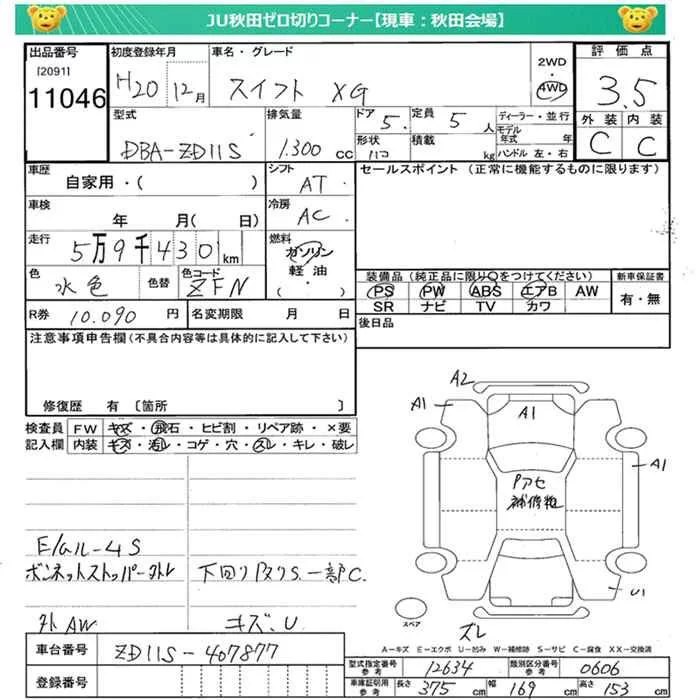 JU秋田ゼロ切りコーナー【現車：秋田会場】
出品番号
[2091]
11046
初度登録年月
H20 12月
車名・グレード
スイフト XG
2WD
・
4WD
評価点
3.5
外装 内装
C C
型式
DBA-ZD11S
排気量
1.300 cc
ドア
5.
形状
ハコ
定員
5 人
積載
kg
ディーラー・並行
モデル年式 年
ハンドル 左・右
車歴
自家用・( )
シフト
AT
車検
年 月( 日)
冷房
AC
走行
5万9千430km
燃料
ガソリン
軽油
( ・ )
色
水色
色替
色コード
ZFN
R券 10.090 円
名変期限 月 日
セールスポイント (正常に機能するものに限ります)
装備品(純正品に限り○をつけてください)
PS PW ABS エアB AW
SR ナビ TV カワ
新車保証書
有・無
後日品
注意事項申告欄(不具合内容等は具体的に記入して下さい)
修復歴 有 〔箇所 〕
検査員記入欄
FW キズ・飛石・ヒビ割・リペア跡・×要
内装 キズ・汚れ・コゲ・穴・スレ・キレ・破レ
E/ルーム4S
ボンネットストッパー外レ
外AW
下回りサビS.一部C.
キズ、U
A2
A1
A1
A1
Pアセ
補修粗
U1
スペア
ズレ
A－キズ E－エクボ U－凹み W－補修跡 S－サビ C－腐食 XX－交換済
車台番号
ZD11S-407877
登録番号
型式指定番号
参考
12634
類別区分番号
参考
0606
車庫証明用
参考
長さ 375 cm 幅 169 cm 高さ 153 cm